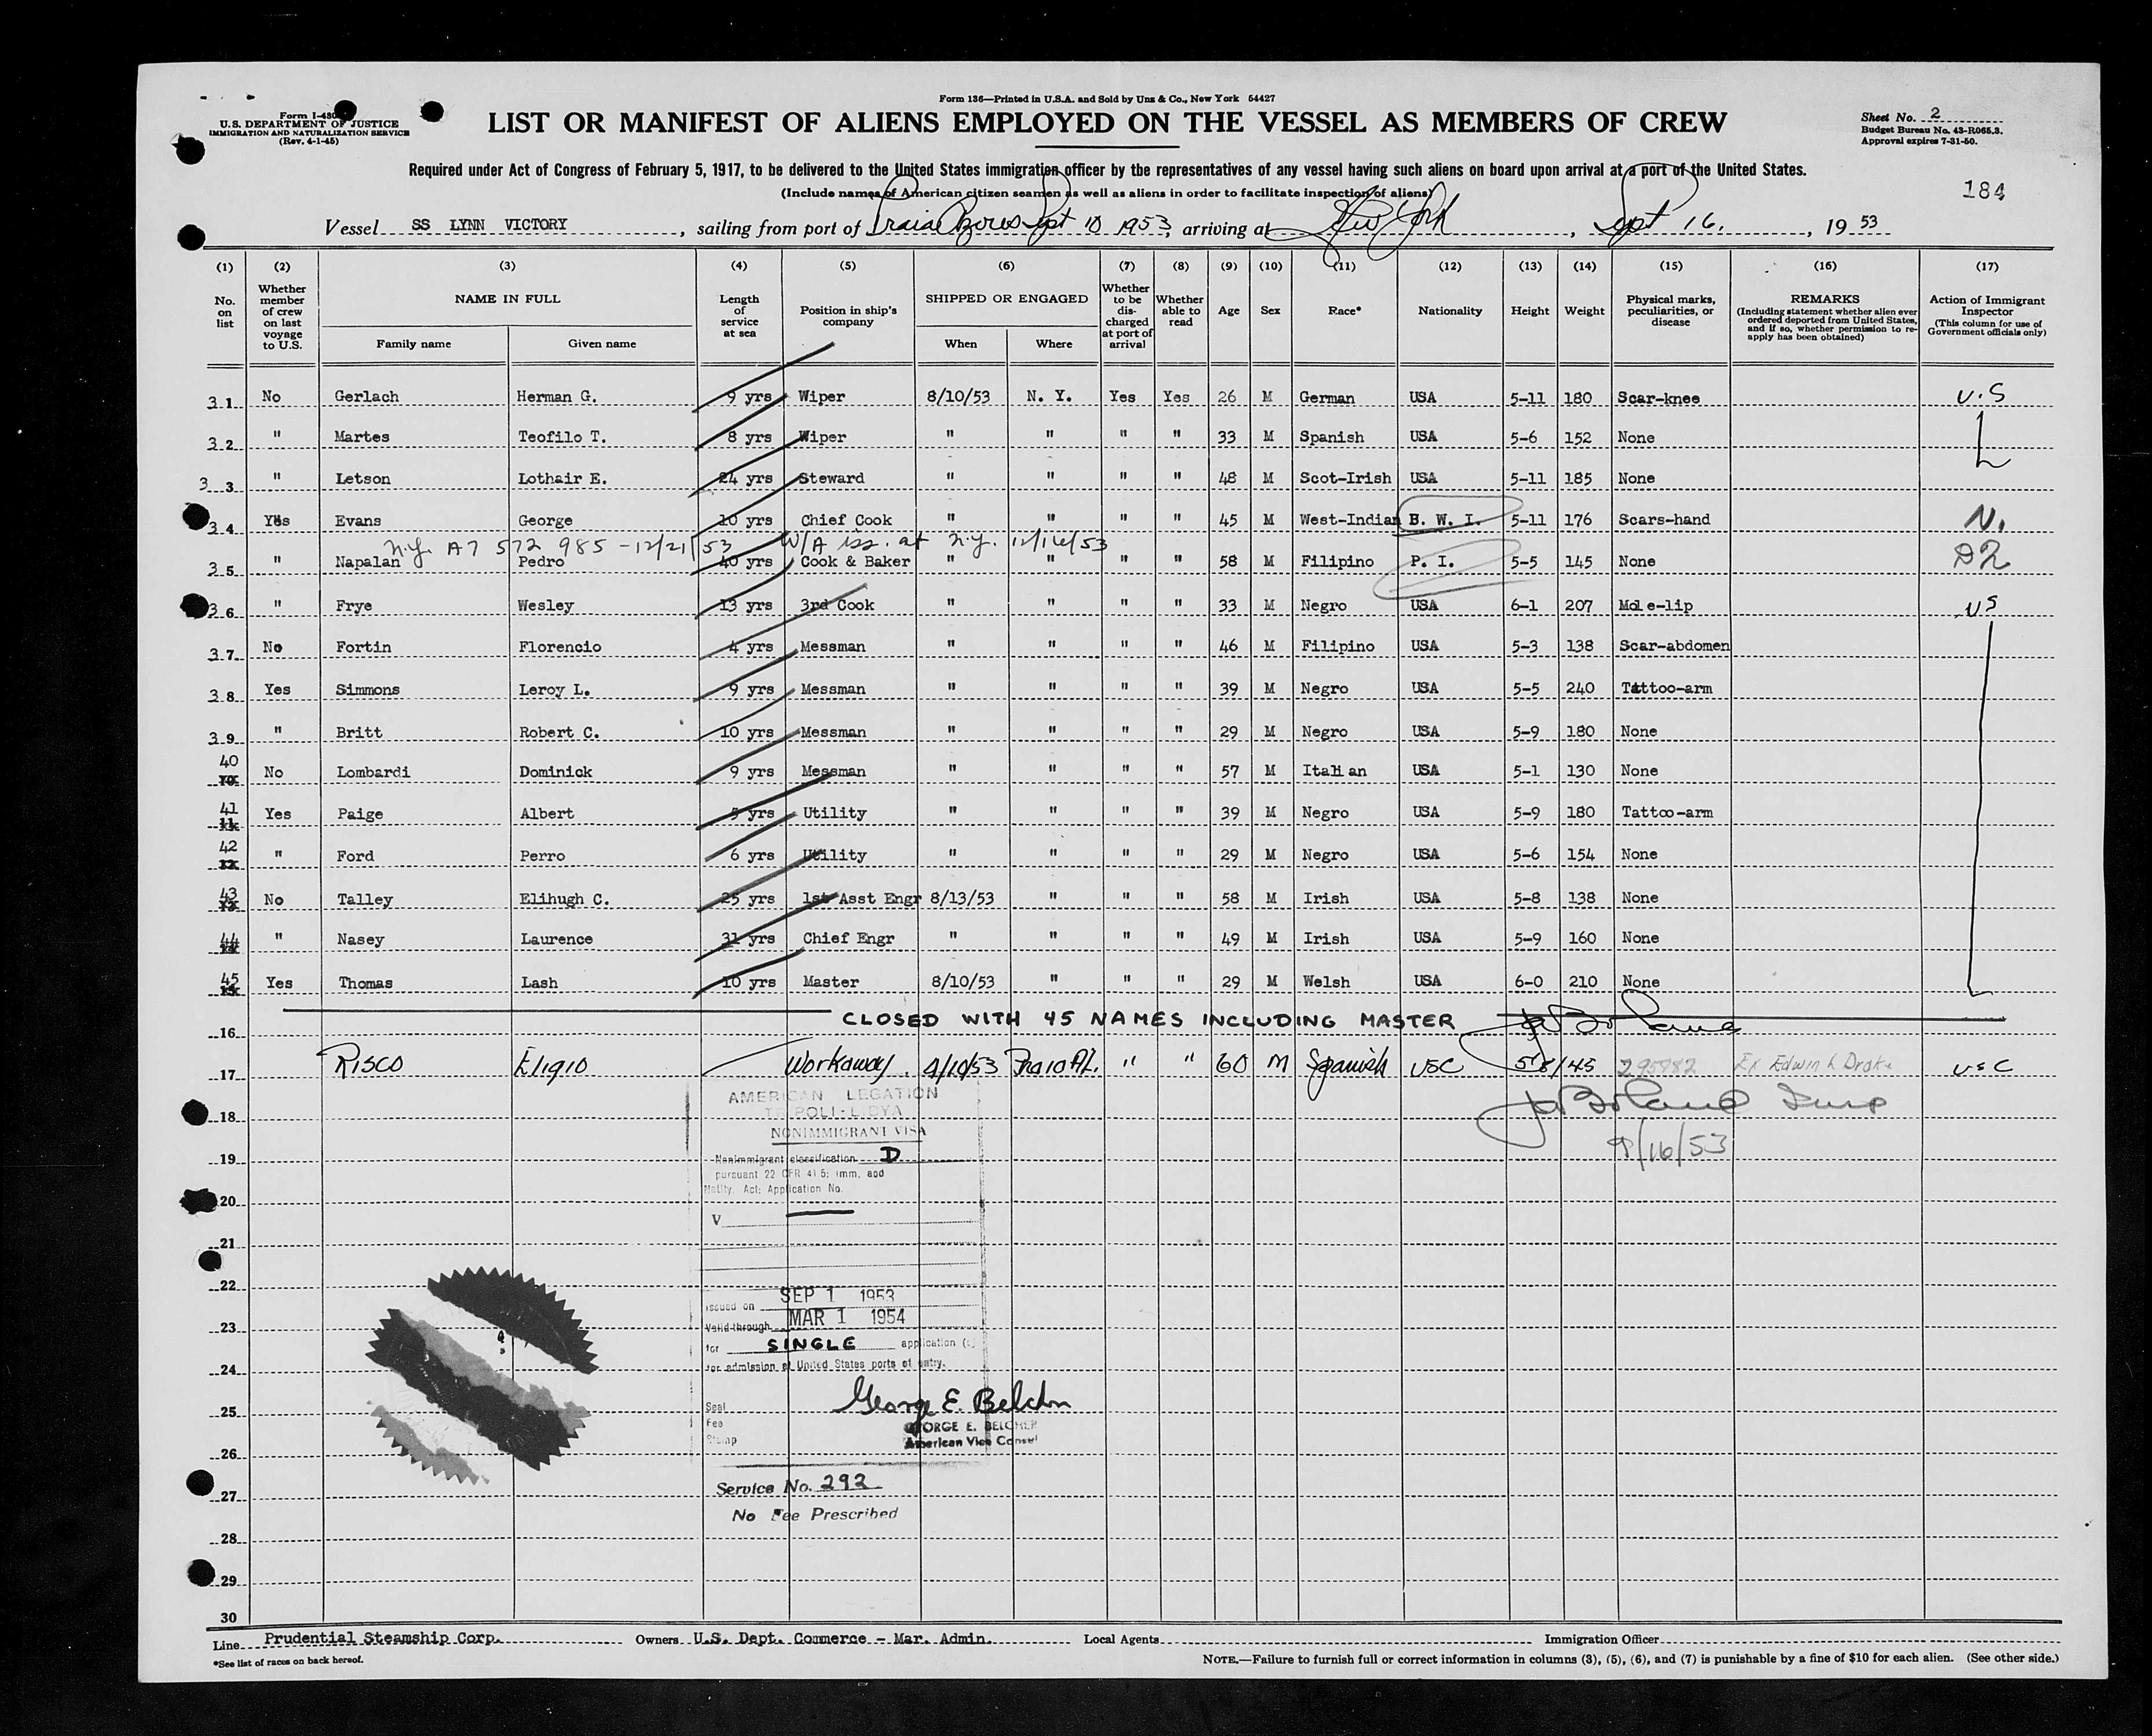 Form 136—Printed in U.S.A. and Sold by Unz & Co., New York 54427
Form I-480
U.S. DEPARTMENT OF JUSTICE
IMMIGRATION AND NATURALIZATION SERVICE
(Rev. 4-1-45)
LIST OR MANIFEST OF ALIENS EMPLOYED ON THE VESSEL AS MEMBERS OF CREW
Sheet No. 2
Budget Bureau No. 43-R065.3.
Approval expires 7-31-50.
Required under Act of Congress of February 5, 1917, to be delivered to the United States immigration officer by the representatives of any vessel having such aliens on board upon arrival at a port of the United States.
(Include names of American citizen seamen as well as aliens in order to facilitate inspection of aliens)
184
Vessel SS LYNN VICTORY, sailing from port of Praia Azores Sept 10 1953, arriving at New York, Sept 16., 19 53
(1) (2) (3) (4) (5) (6) (7) (8) (9) (10) (11) (12) (13) (14) (15) (16) (17)
No. on list
Whether member of crew on last voyage to U.S.
NAME IN FULL
Family name Given name
Length of service at sea
Position in ship's company
SHIPPED OR ENGAGED
When Where
Whether to be discharged at port of arrival
Whether able to read
Age
Sex
Race*
Nationality
Height
Weight
Physical marks, peculiarities, or disease
REMARKS
(Including statement whether alien ever ordered deported from United States, and if so, whether permission to re-apply has been obtained)
Action of Immigrant Inspector
(This column for use of Government officials only)
31 No Gerlach Herman G. 9 yrs Wiper 8/10/53 N. Y. Yes Yes 26 M German USA 5-11 180 Scar-knee U.S
32 " Martes Teofilo T. 8 yrs Wiper " " " " 33 M Spanish USA 5-6 152 None
3 3 " Letson Lothair E. 24 yrs Steward " " " " 48 M Scot-Irish USA 5-11 185 None
34 Yes Evans George 10 yrs Chief Cook " " " " 45 M West-Indian B. W. I. 5-11 176 Scars-hand N.
N.Y. A7 572 985 - 12/21/53 W/A iss. at N.Y. 12/16/53
35 " Napalan Pedro 40 yrs Cook & Baker " " " " 58 M Filipino P. I. 5-5 145 None D2
36 " Frye Wesley 13 yrs 3rd Cook " " " " 33 M Negro USA 6-1 207 Mole-lip US
37 No Fortin Florencio 4 yrs Messman " " " " 46 M Filipino USA 5-3 138 Scar-abdomen
38 Yes Simmons Leroy L. 9 yrs Messman " " " " 39 M Negro USA 5-5 240 Tattoo-arm
39 " Britt Robert C. 10 yrs Messman " " " " 29 M Negro USA 5-9 180 None
40 No Lombardi Dominick 9 yrs Messman " " " " 57 M Italian USA 5-1 130 None
41 Yes Paige Albert 5 yrs Utility " " " " 39 M Negro USA 5-9 180 Tattoo-arm
42 " Ford Perro 6 yrs Utility " " " " 29 M Negro USA 5-6 154 None
43 No Talley Elihugh C. 25 yrs 1st Asst Engr 8/13/53 " " " 58 M Irish USA 5-8 138 None
44 " Nasey Laurence 31 yrs Chief Engr " " " " 49 M Irish USA 5-9 160 None
45 Yes Thomas Lash 10 yrs Master 8/10/53 " " " 29 M Welsh USA 6-0 210 None
CLOSED WITH 45 NAMES INCLUDING MASTER
16
17 Risco Eligio Workaway 9/10/53 Praia " " 60 M Spanish USC 5'8 145 295882 Ex Edwin L Drake USC
18
19
20
21
22
23
24
25
26
27
28
29
30
9/16/53
AMERICAN LEGATION
TRIPOLI-LIBYA
NONIMMIGRANT VISA
Nonimmigrant classification D
pursuant 22 CFR 41.5; Imm. and
Natlty. Act; Application No.
V
Issued on SEP 1 1953
Valid through MAR 1 1954
for SINGLE application (s)
for admission at United States ports of entry.
George E. Belcher
Seal
Fee
Stamp
GEORGE E. BELCHER
American Vice Consul
Service No. 292
No Fee Prescribed
Line Prudential Steamship Corp. Owners U.S. Dept. Commerce - Mar. Admin. Local Agents Immigration Officer
*See list of races on back hereof.
NOTE.—Failure to furnish full or correct information in columns (3), (5), (6), and (7) is punishable by a fine of $10 for each alien. (See other side.)